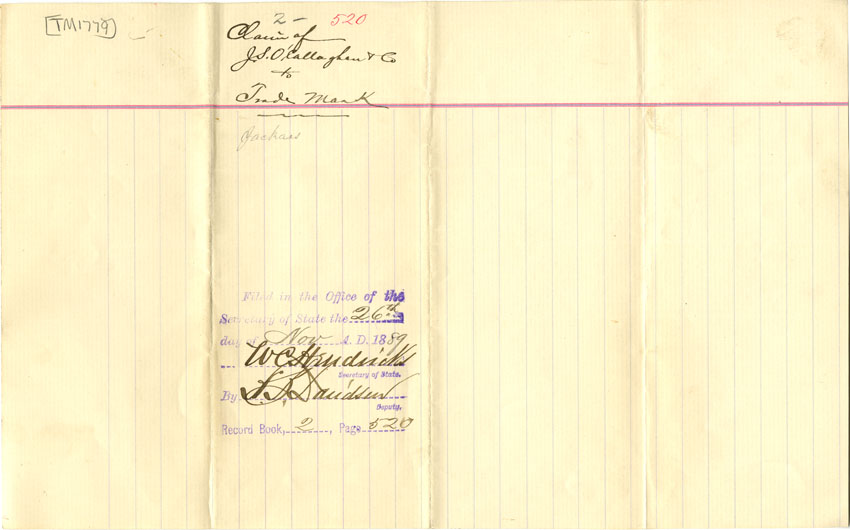 [TM1779]
2 - 520
Claim of
J.S. O'Callaghan & Co
to
Trade Mark
Filed in the Office of the
Secretary of State the 26th
day of Nov A. D. 1889
W C Hendricks
Secretary of State.
By Davidson
Deputy.
Record Book, 2, Page 520